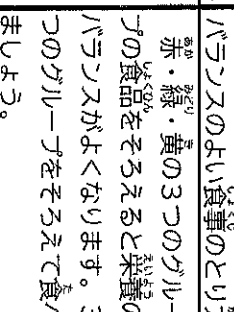 バランスのよい食事のとり
赤・緑・黄の3つのグルー
プの食品をそろえると栄養の
バランスがよくなります。
つのグループをそろえて食
ましょう。